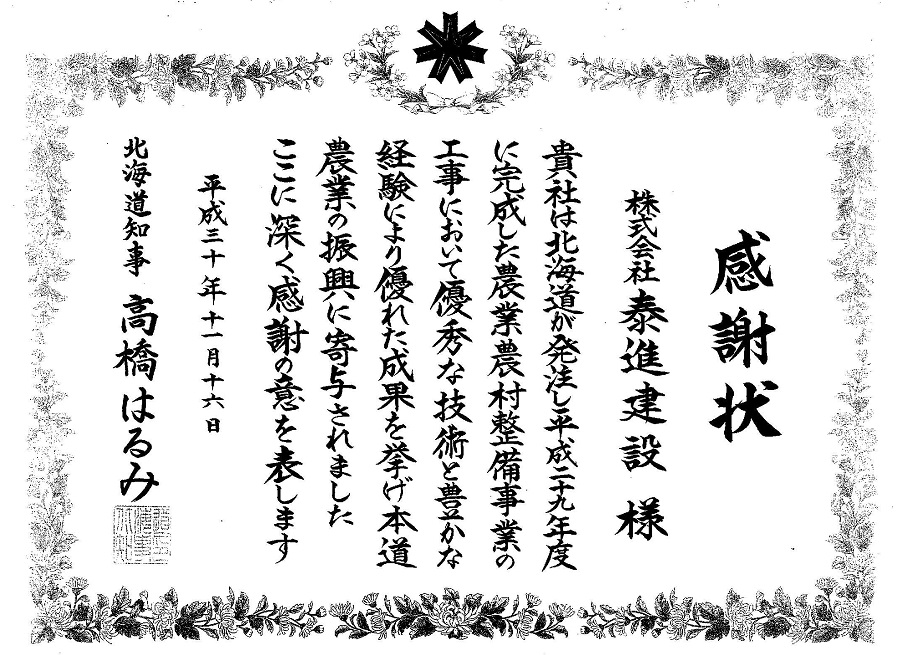 感謝状
株式会社 泰進建設 様
貴社は北海道が発注し平成二十九年度
に完成した農業農村整備事業の
工事において優秀な技術と豊かな
経験により優れた成果を挙げ本道
農業の振興に寄与されました
ここに深く感謝の意を表します
平成三十年十一月十六日
北海道知事 高橋はるみ